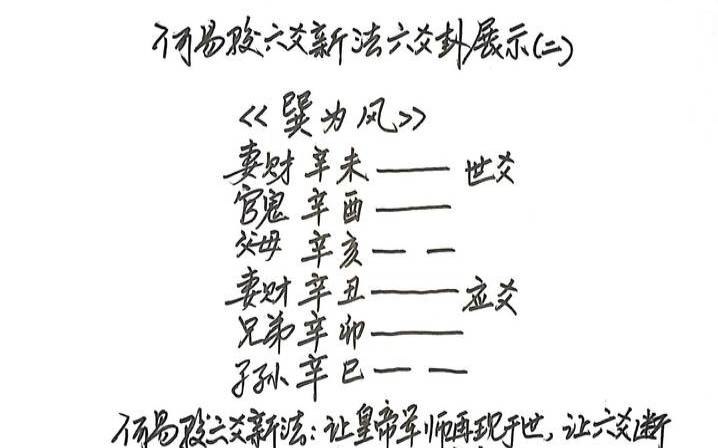 何易骏六爻新法六爻卦展示(二)
<<巽为风>>
妻财 辛未 世爻
官鬼 辛酉
父母 辛亥
妻财 辛丑 应爻
兄弟 辛卯
子孙 辛巳
何易骏六爻新法:让皇帝军师再现于世,让六爻断